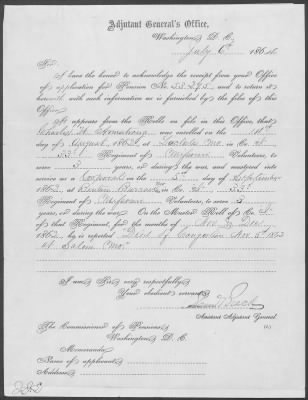 Adjutant General's Office,
Washington, D. C.,
July 6th 1864
Sir:
I have the honor to acknowledge the receipt from your Office
of application for Pension No. 23,295, and to return it
herewith, with such information as is furnished by the files of this
Office.
It appears from the Rolls on file in this Office, that
Charles H. Armstrong was enrolled on the
day of August, 1862, at Mo. in Co.
33d Regiment of Missouri Volunteers, to
serve 3 years, or during the war, and mustered into
service as a Corporal on the 5th day of September
1862, at Benton Barracks Mo. in Co. 33d
Regiment of Missouri Volunteers, to serve 3
years, or during the war. On the Muster Roll of Co.
of that Regiment, for the months of Nov & Dec
1862, he is reported "Died of Congestion Nov 1862
at Salem Mo."
I am, Sir, very respectfully,
Your obedient servant,
Assistant Adjutant General.
The Commissioner of Pensions,
Washington, D. C.
Memoranda
Name of applicant,
Address,